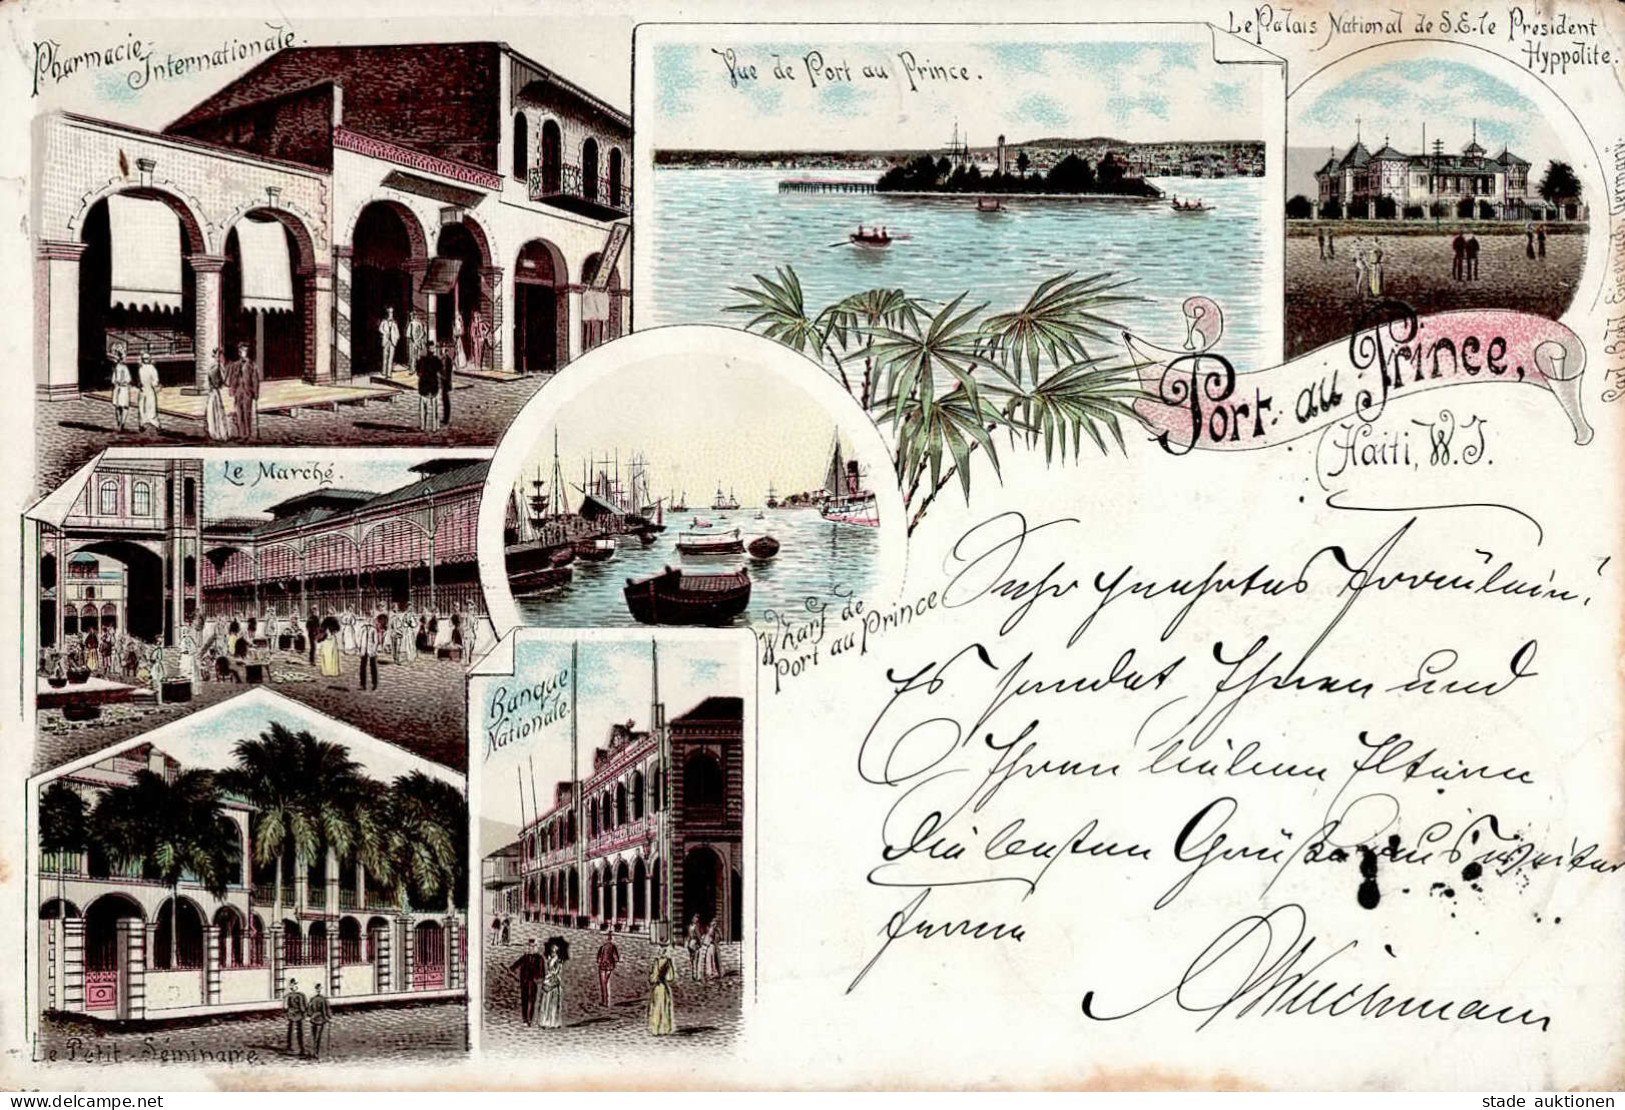 Pharmacie-
Internationale.
Vue de Port au Prince.
Le Palais National de S.E. le Président
Hyppolite.
Port-au Prince,
Haiti, W.I.
Le Marché.
Wharf de
Port au Prince
Banque
Nationale.
Le Petit-Séminaire.
Sehr geehrtes Fräulein!
Es sendet Ihnen und
Ihren lieben Eltern
die besten Grüße aus weiter
ferne
Wiechmann
delcampe.net
stade auktionen